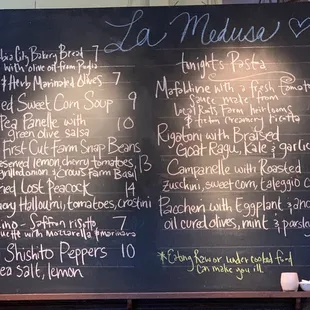 La Medusa
City Bakery Bread 7
with olive oil from Puglia
& Herb Marinated Olives 7
Sweet Corn Soup 9
Panelle with 10
green olive salsa
First Cut Farm Snap Beans
lemon cherry tomatoes, 13
grilled onion & Crows Farm Basil
Lost Peacock 14
Halloumi, tomatoes, crostini
Saffron risotto 7
with mozzarella & marinara
Shishito Peppers 10
sea salt, lemon
tonight's Pasta
Mafaldine with a fresh tomato
sauce made from
Local Roots Farm heirlooms
& creamy ricotta
Rigatoni with Braised
Goat Ragu, Kale & garlic
Campanelle with Roasted
zucchini, sweet corn, taleggio
Paccheri with Eggplant &
oil cured olives, mint & parsley
*Eating Raw or undercooked food
can make you ill